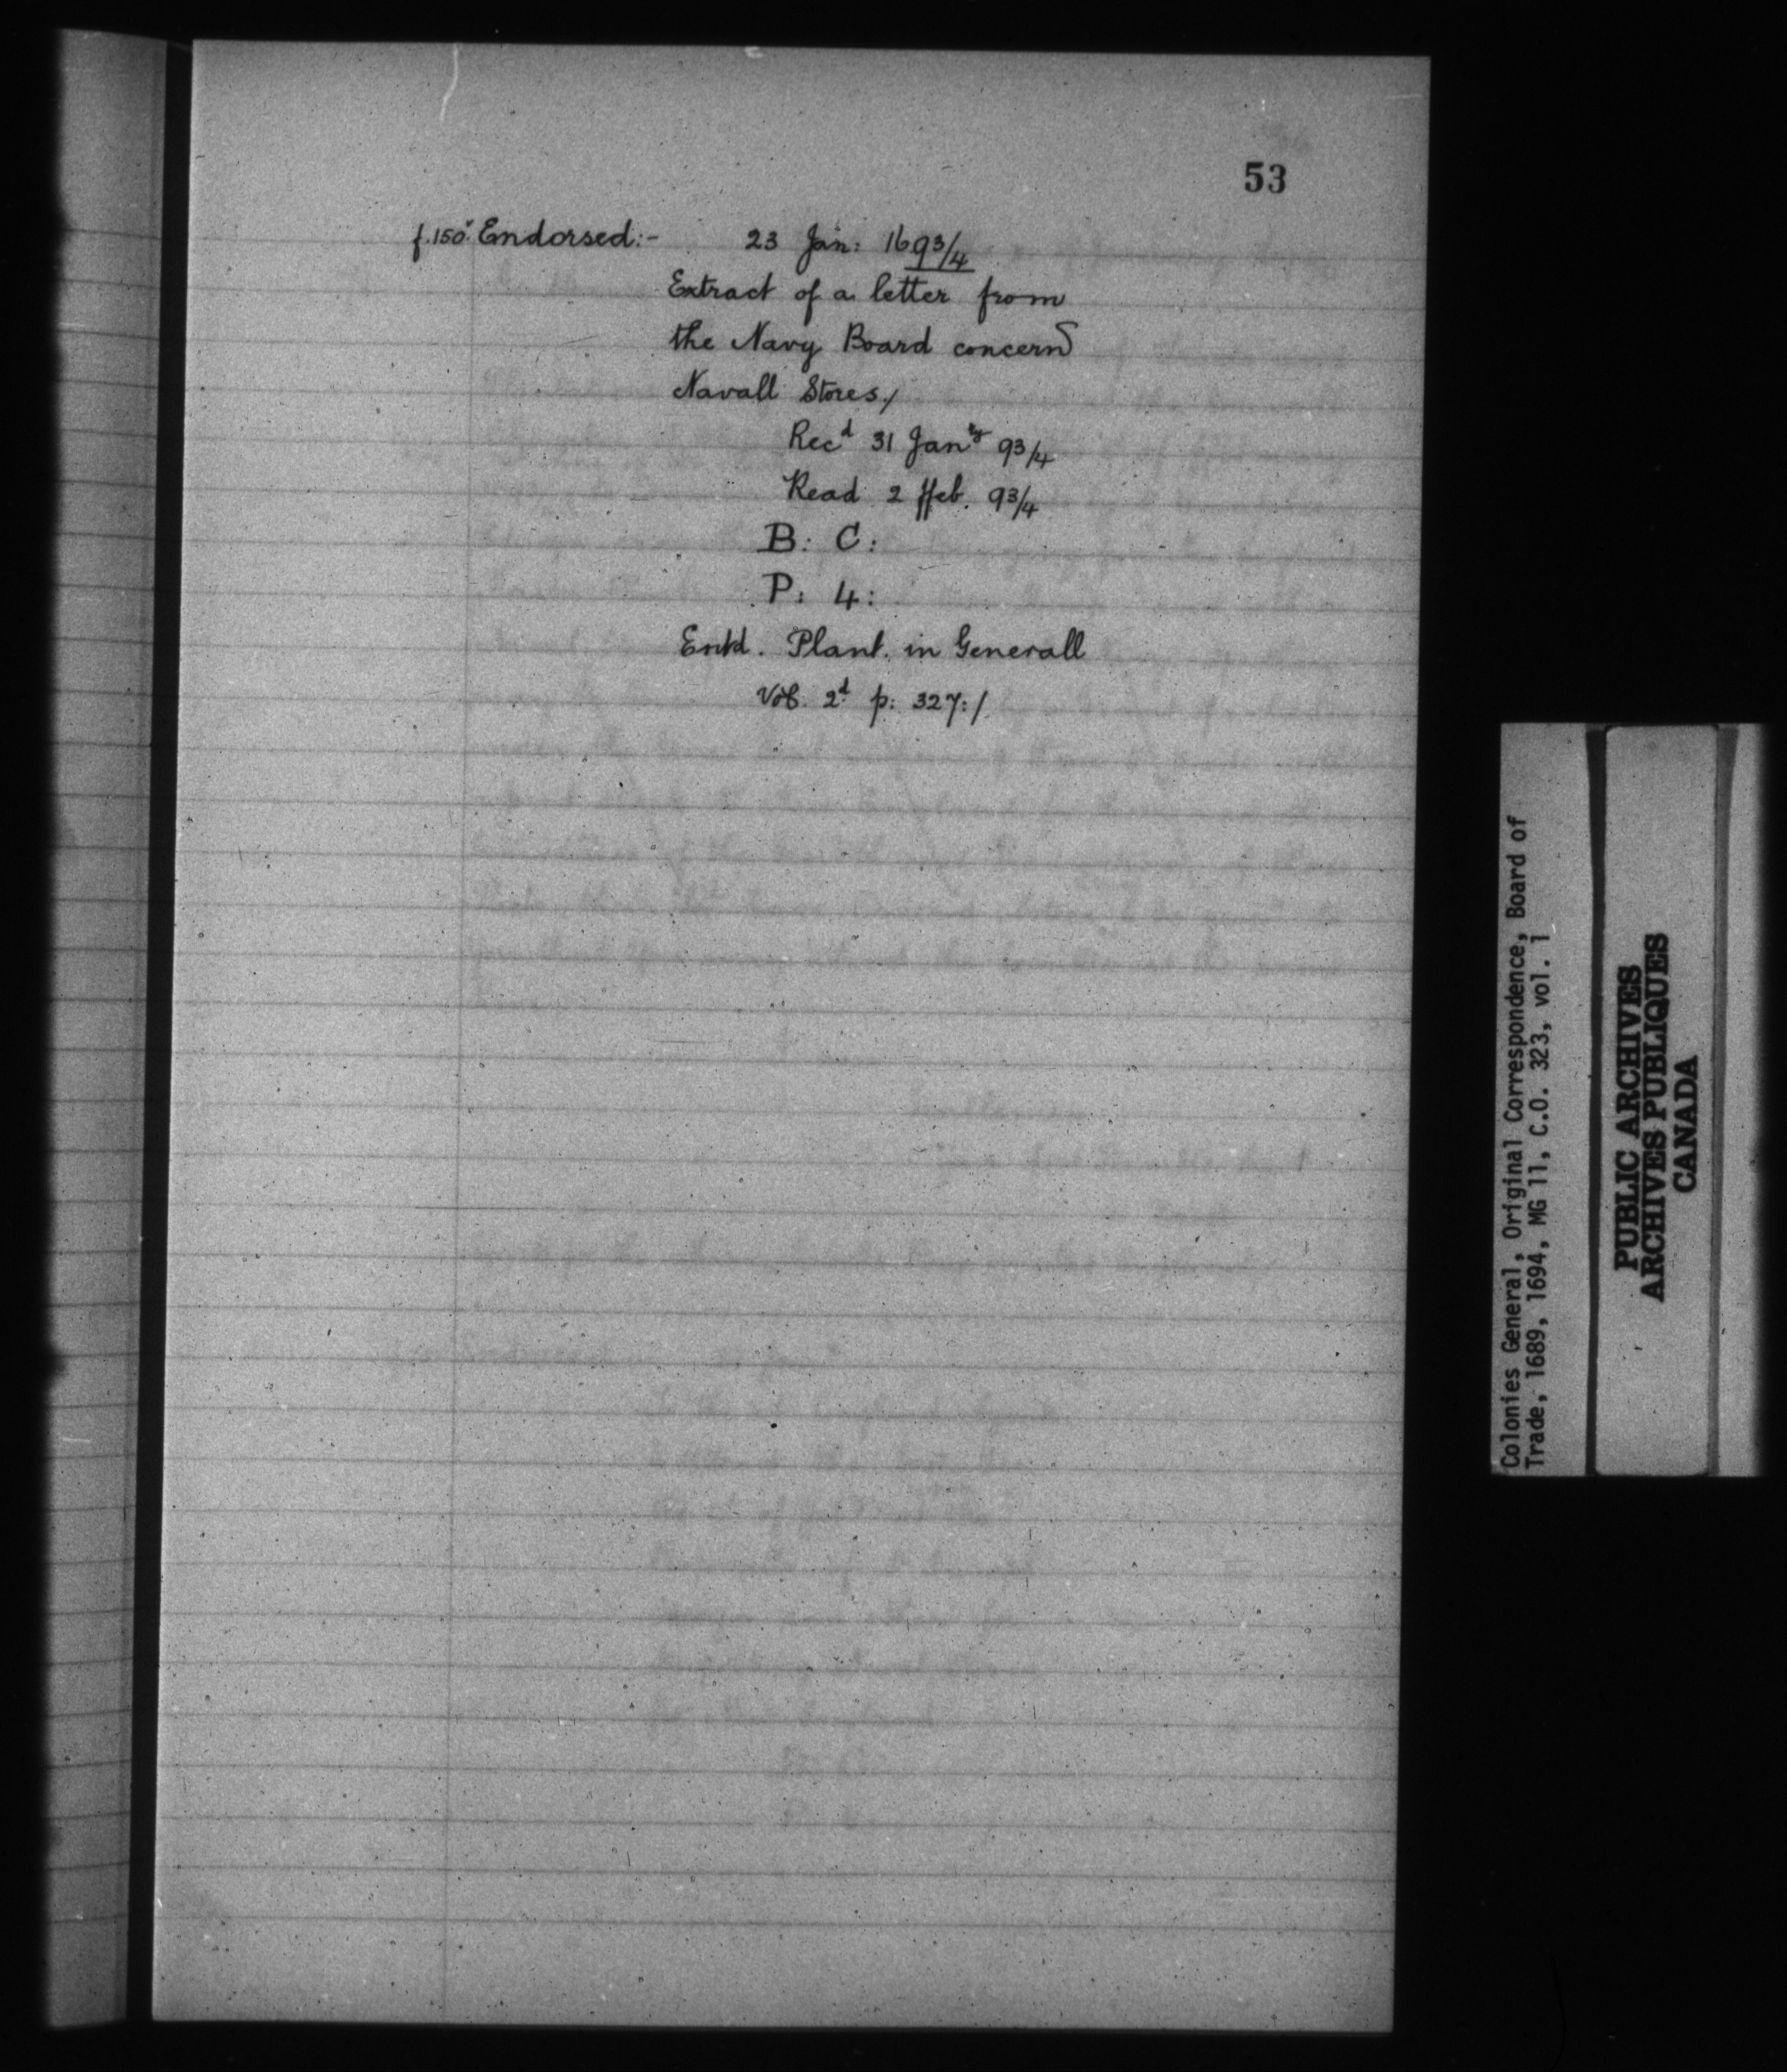 53
f.150ᵛ Endorsed:- 23 Jan: 1693/4
Extract of a letter from
the Navy Board concern
Navall Stores/
Recᵈ 31 Janʳʸ 93/4
Read 2 ffeb. 93/4
B: C:
P: 4:
Entd. Plant. in Generall
Vol. 2ᵈ p: 327:/
Colonies General, Original Correspondence, Board of
Trade, 1689, 1694, MG 11, C.O. 323, vol. 1
PUBLIC ARCHIVES
ARCHIVES PUBLIQUES
CANADA